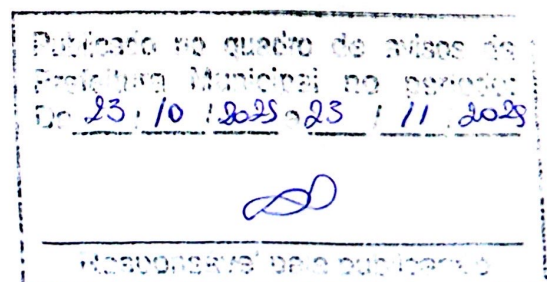 Publicado no quadro de avisos da
Prefeitura Municipal no período:
De 23 / 10 / 2025 a 23 / 11 / 2025
Responsável pela publicação